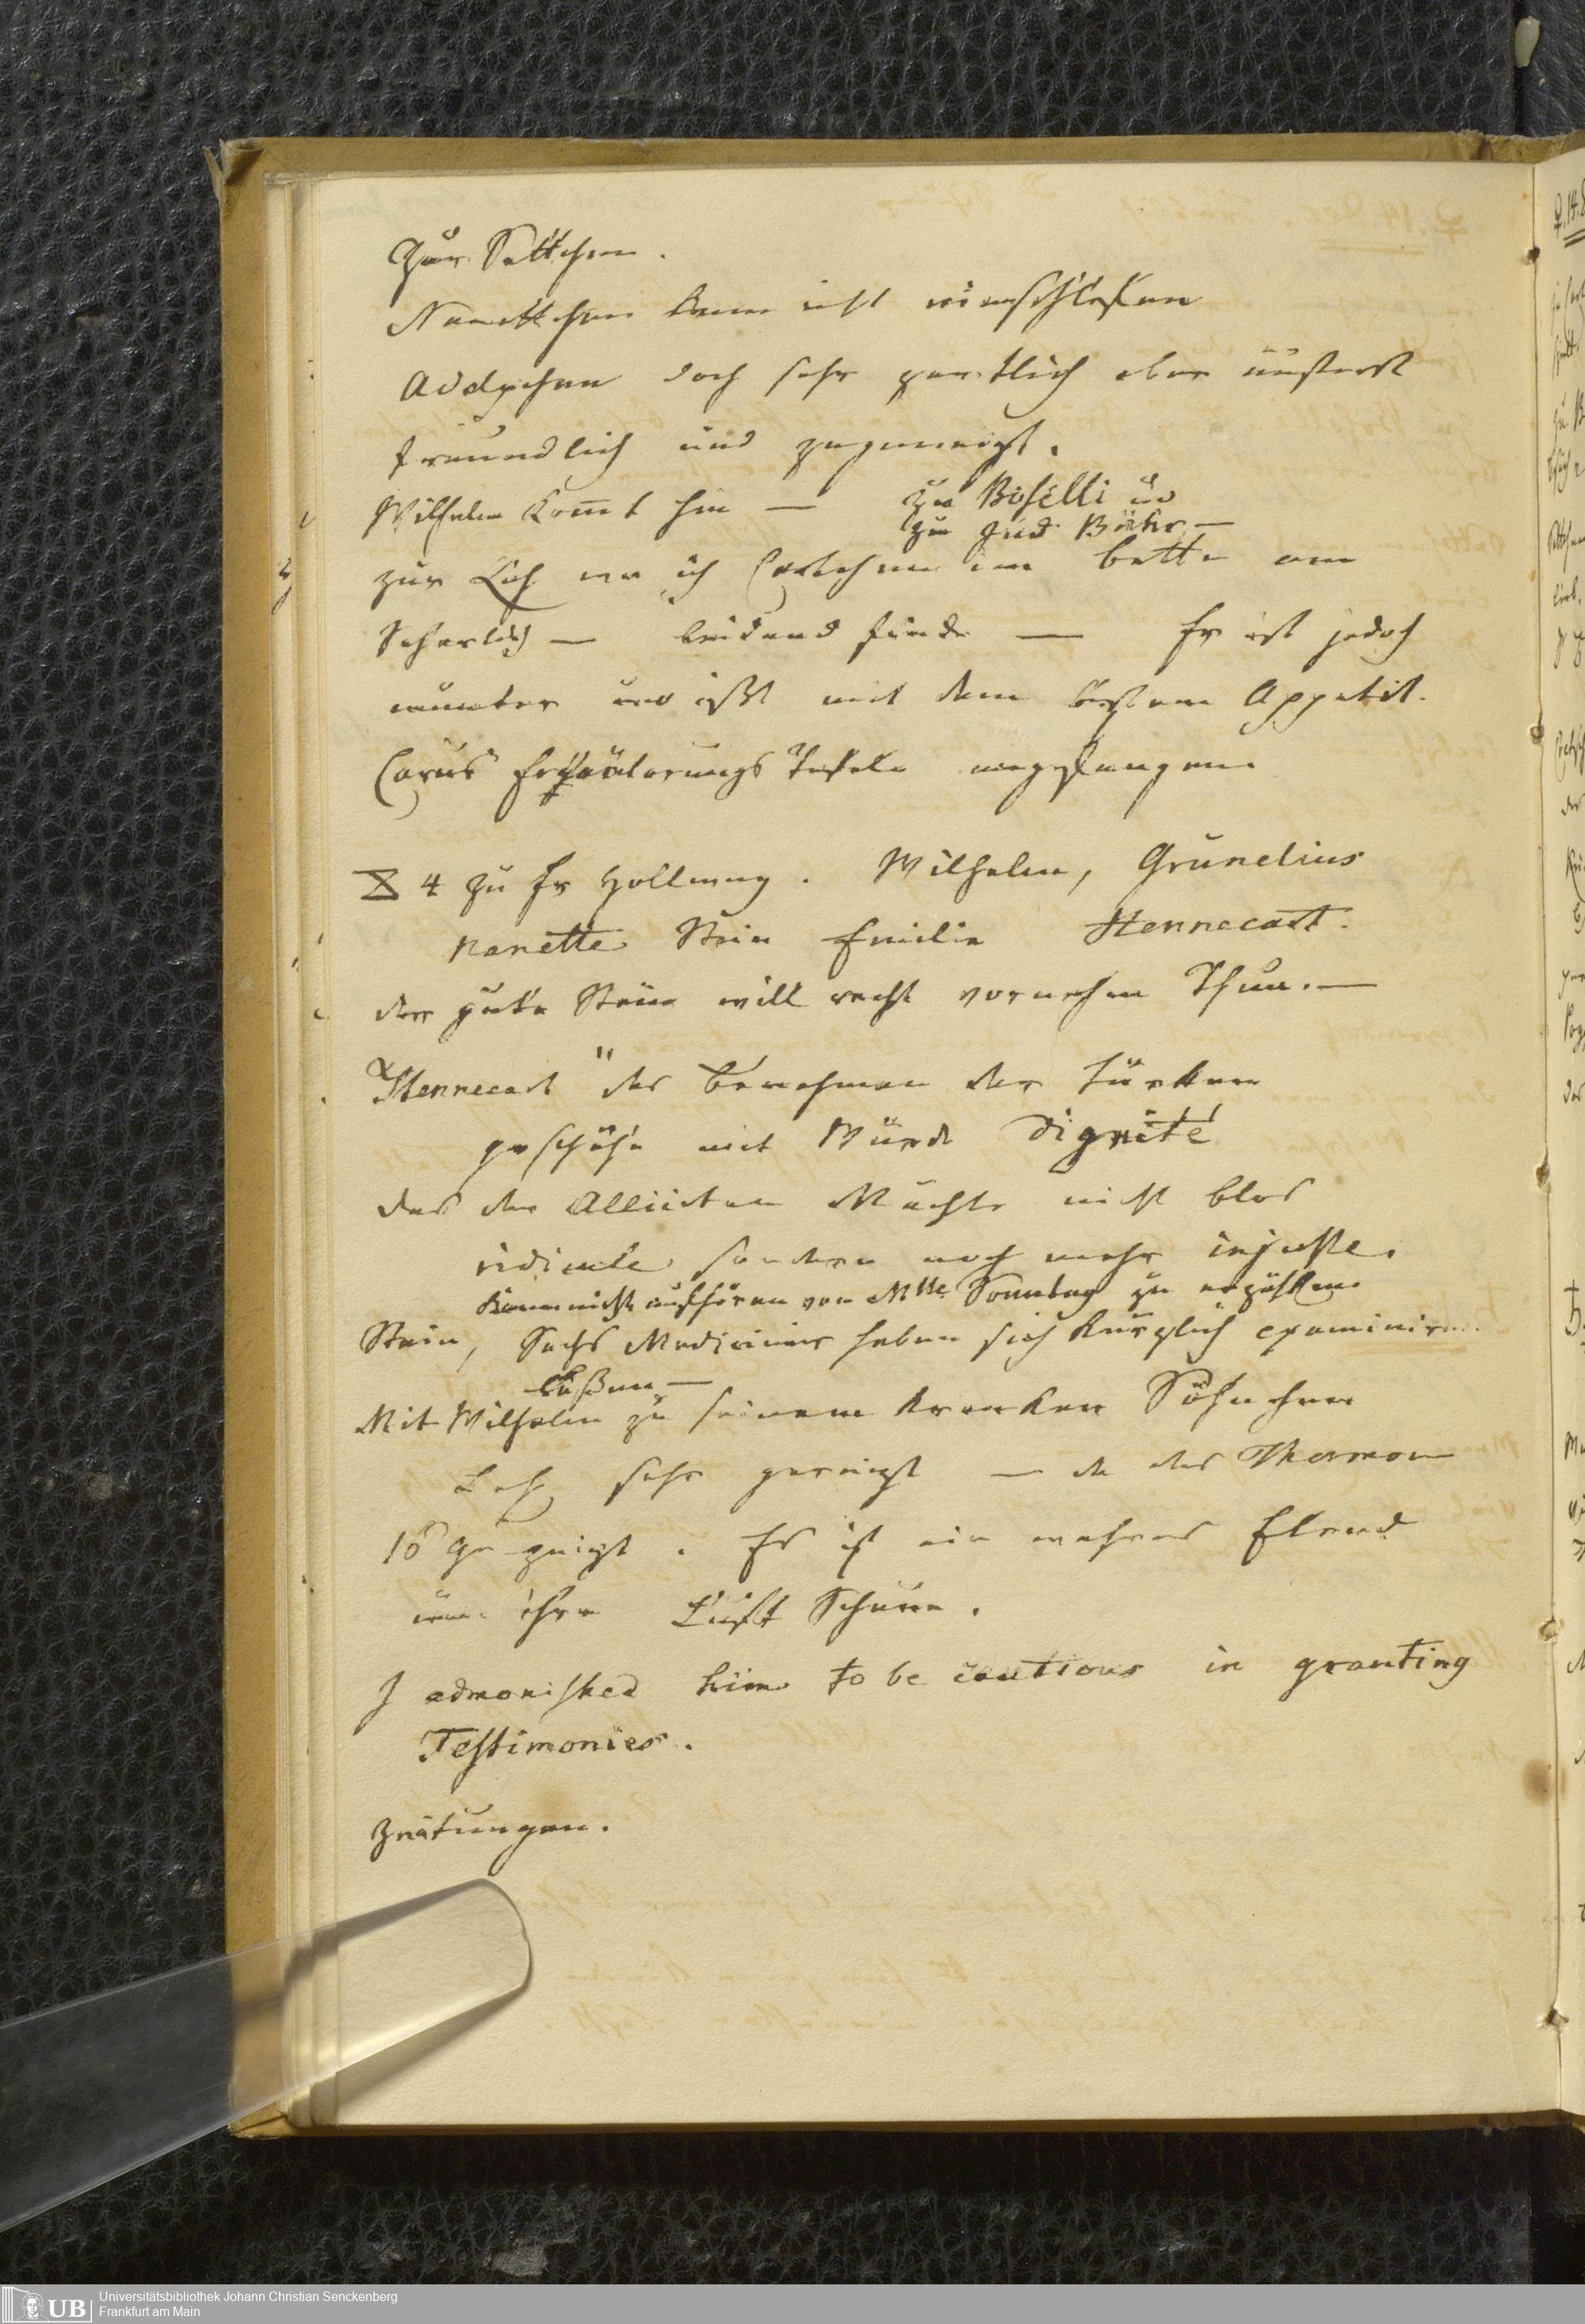 Zur Settchen.
Nanettchen kann nicht einschlafen
Adelgchen doch sehr zärtlich aber äußerst
freundlich und zugeneigt.
Wilhelm kom̅t hin — Zu Boselli und
zu Jud Bähr —
zur Loh wo ich Carlchen im Bette am
Scharlach — leidend finde — Er ist jedoch
munter und ißt mit dem besten Appetit.
Carus Erläuterungs Tafeln
4 zu Fr Hollweg. Wilhelm, Grunelius
Nanette Stein Emilie Hennecart.
der gute Stein will recht vornehm Thun. —
Hennecart "das Benehmen der Türken
geschähe mit Würde Dignité
das der Alliirten Mächte nicht blos
ridicule sondern noch mehr injuste.
kann nicht aufhören von Mlle. Sonntag zu erzählen
Stein, Sechs Mediciner haben sich kürzlich examiniren
laßen —
Mit Wilhelm zu seinem kranken Söhnchen
Loh sehr gereizt — da der Thermom
16 Gr zeigt. Es ist ein wahres Elend
um ihre Luft Scheue.
I admonished him to be cautious in granting
Testimonies.
Zeitungen.
Universitätsbibliothek Johann Christian Senckenberg
Frankfurt am Main
UB